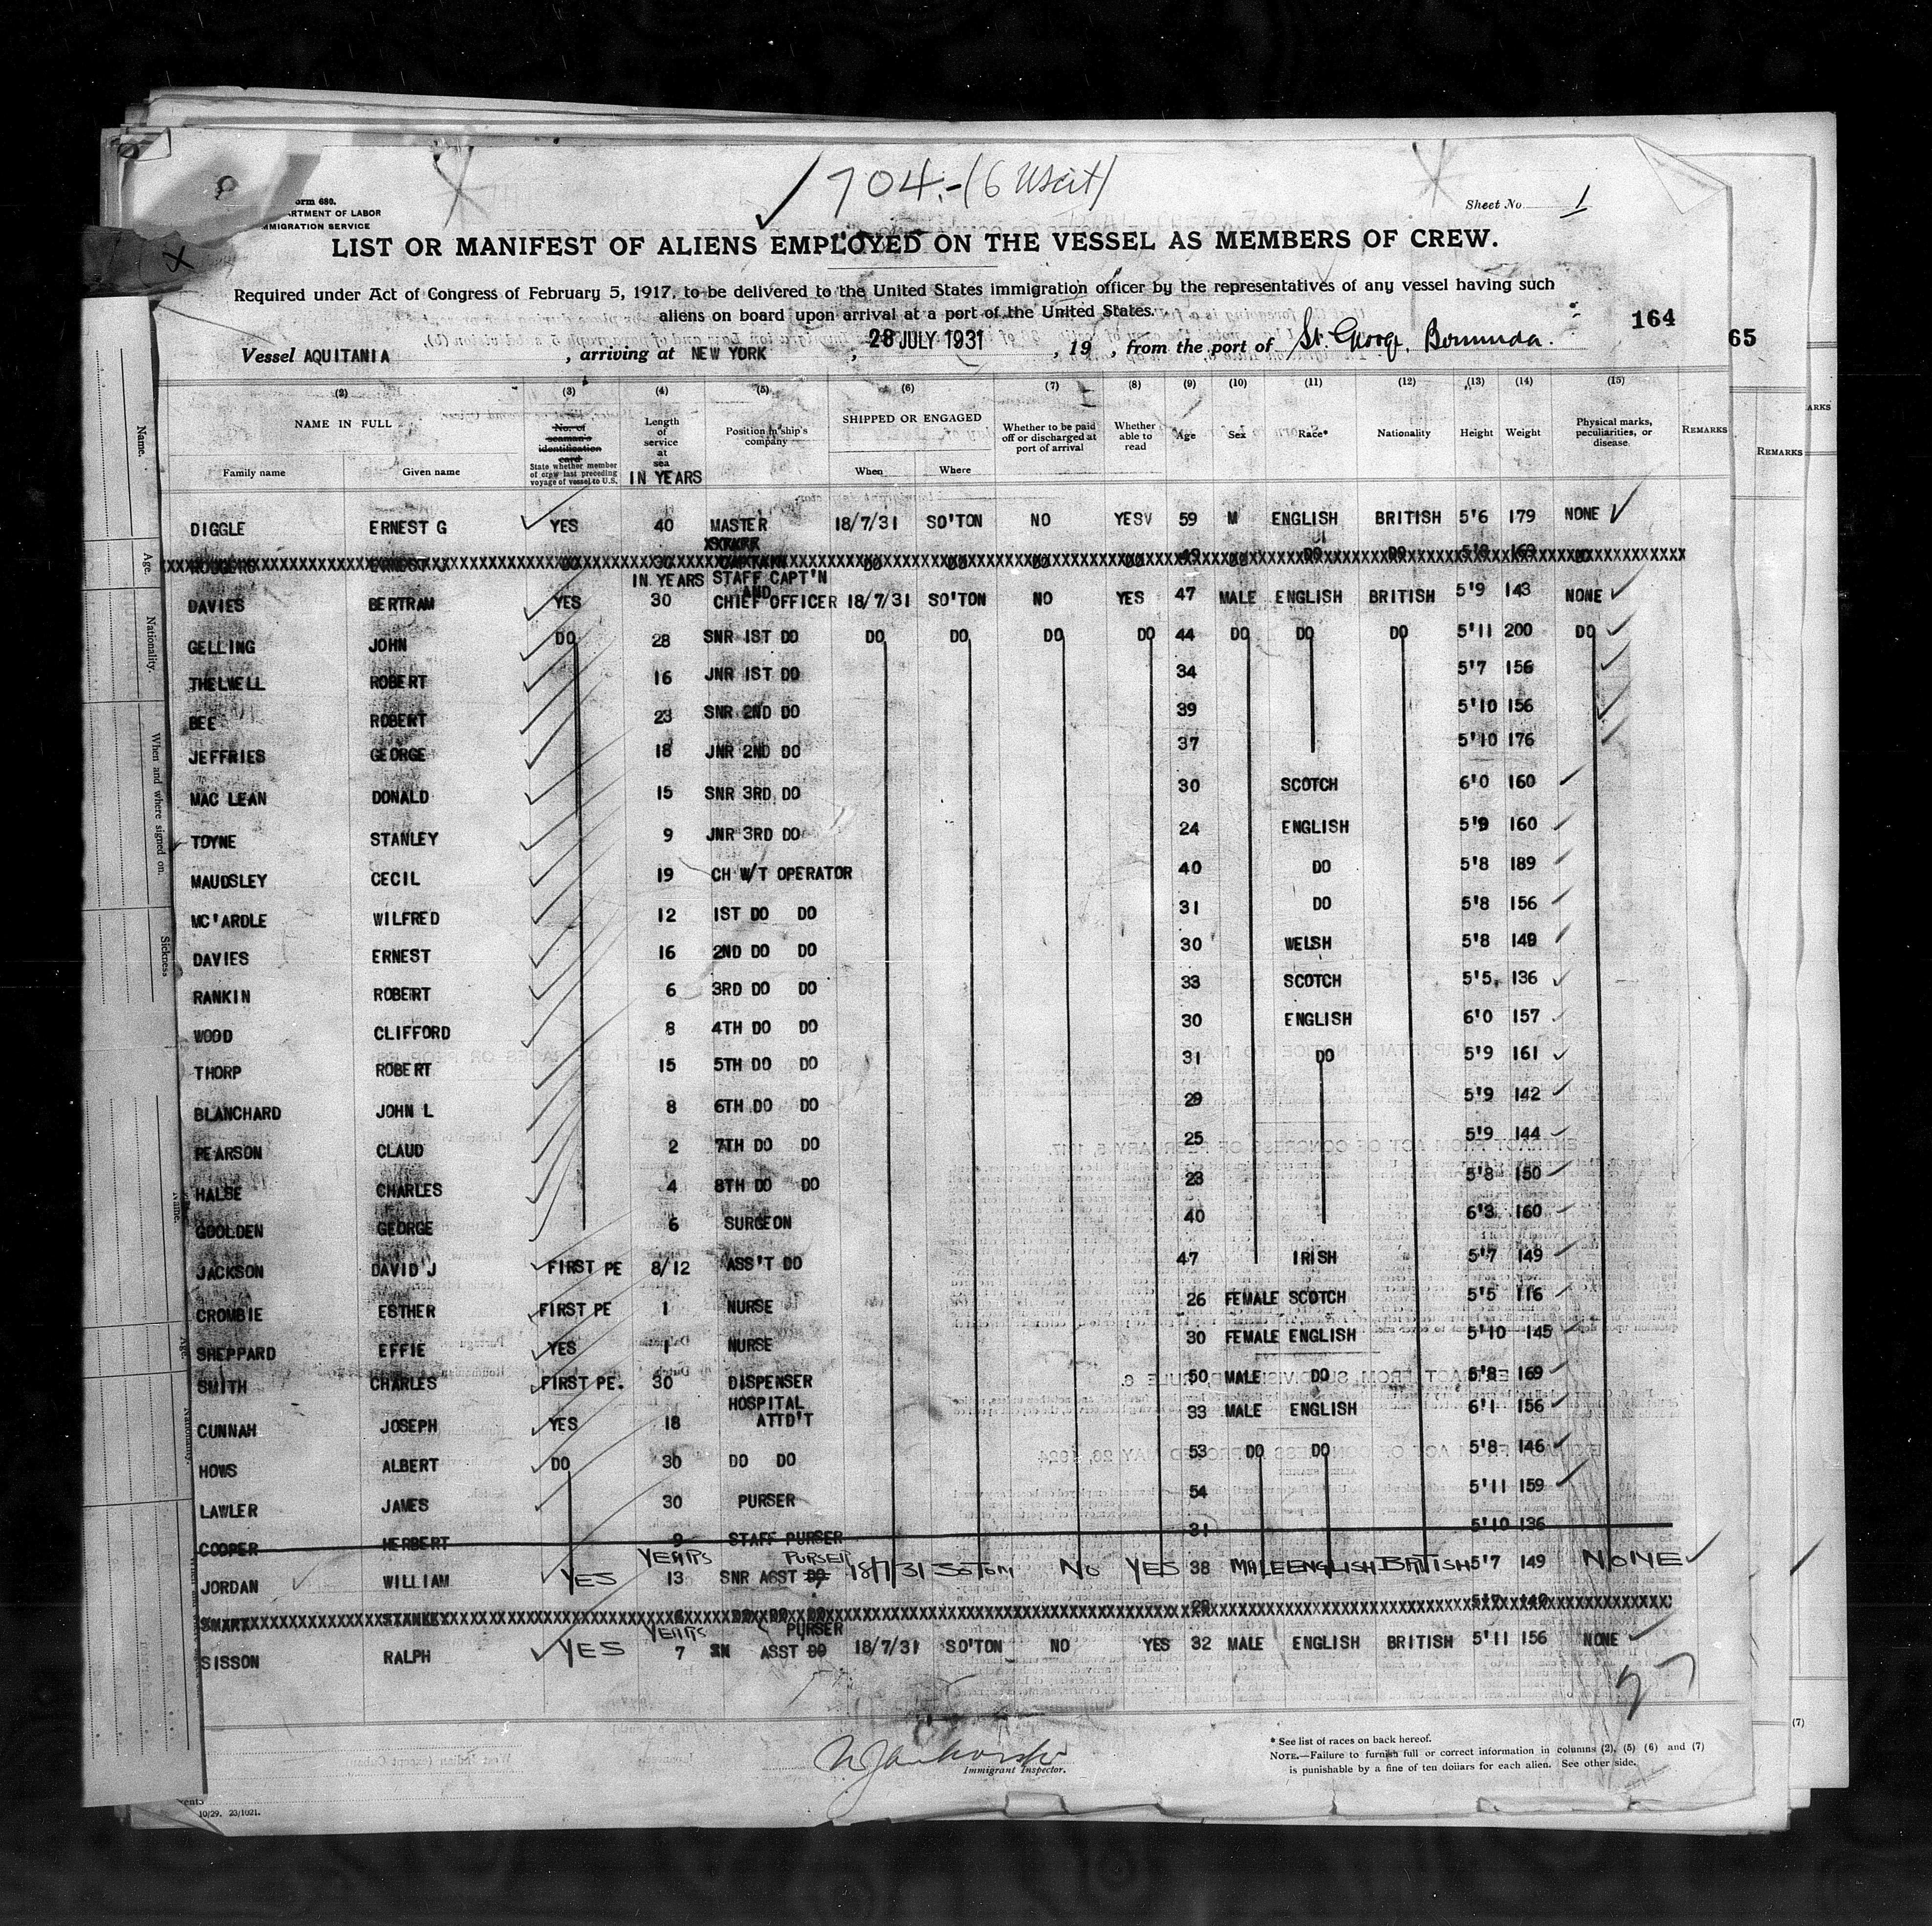 704.-(6 UScit)
orm 680.
ARTMENT OF LABOR
MMIGRATION SERVICE
Sheet No 1
LIST OR MANIFEST OF ALIENS EMPLOYED ON THE VESSEL AS MEMBERS OF CREW.
Required under Act of Congress of February 5, 1917, to be delivered to the United States immigration officer by the representatives of any vessel having such
aliens on board upon arrival at a port of the United States.
164
65
Vessel AQUITANIA, arriving at NEW YORK, 28 JULY 1931, 19 , from the port of St. George, Bermuda.
(2) (3) (4) (5) (6) (7) (8) (9) (10) (11) (12) (13) (14) (15)
NAME IN FULL
Family name Given name
No. of seaman's identification card
State whether member of crew last preceding voyage of vessel to U.S.
Length of service at sea
IN YEARS
Position in ship's company
SHIPPED OR ENGAGED
When Where
Whether to be paid off or discharged at port of arrival
Whether able to read
Age Sex Race* Nationality Height Weight
Physical marks, peculiarities, or disease.
REMARKS
REMARKS
ARKS
DIGGLE ERNEST G YES 40 MASTER 18/7/31 SO'TON NO YES 59 M ENGLISH BRITISH 5'6 179 NONE
IN YEARS STAFF CAPT'N
AND
DAVIES BERTRAM YES 30 CHIEF OFFICER 18/7/31 SO'TON NO YES 47 MALE ENGLISH BRITISH 5'9 143 NONE
GELLING JOHN DO 28 SNR 1ST DO DO DO DO DO 44 DO DO DO 5'11 200 DO
THELWELL ROBERT 16 JNR 1ST DO 34 5'7 156
BEE ROBERT 23 SNR 2ND DO 39 5'10 156
JEFFRIES GEORGE 18 JNR 2ND DO 37 5'10 176
MAC LEAN DONALD 15 SNR 3RD. DO 30 SCOTCH 6'0 160
TOYNE STANLEY 9 JNR 3RD DO 24 ENGLISH 5'9 160
MAUDSLEY CECIL 19 CH W/T OPERATOR 40 DO 5'8 189
MC'ARDLE WILFRED 12 1ST DO DO 31 DO 5'8 156
DAVIES ERNEST 16 2ND DO DO 30 WELSH 5'8 149
RANKIN ROBERT 6 3RD DO DO 33 SCOTCH 5'5, 136
WOOD CLIFFORD 8 4TH DO DO 30 ENGLISH 6'0 157
THORP ROBERT 15 5TH DO DO 31 DO 5'9 161
BLANCHARD JOHN L 8 6TH DO DO 29 5'9 142
PEARSON CLAUD 2 7TH DO DO 25 5'9 144
HALSE CHARLES 4 8TH DO DO 23 5'8 150
GOOLDEN GEORGE 6 SURGEON 40 6'3 160
JACKSON DAVID J FIRST PE 8/12 ASS'T DO 47 IRISH 5'7 149
CROMBIE ESTHER FIRST PE 1 NURSE 26 FEMALE SCOTCH 5'5 116
SHEPPARD EFFIE YES 1 NURSE 30 FEMALE ENGLISH 5'10 145
SMITH CHARLES FIRST PE. 30 DISPENSER 50 MALE DO 5'8 169
HOSPITAL
CUNNAH JOSEPH YES 18 ATTD'T 33 MALE ENGLISH 6'1 156
HOWS ALBERT DO 30 DO DO 53 DO DO 5'8 146
LAWLER JAMES 30 PURSER 54 5'11 159
COOPER HERBERT 9 STAFF PURSER 31 5'10 136
YEARS PURSER
JORDAN WILLIAM YES 13 SNR ASST DO 18/7/31 SoTon No YES 38 MALE ENGLISH BRITISH 5'7 149 NONE
SMART STANLEY
YEARS PURSER
SISSON RALPH YES 7 ASST DO 18/7/31 SO'TON NO YES 32 MALE ENGLISH BRITISH 5'11 156 NONE
Immigrant Inspector.
* See list of races on back hereof.
NOTE.—Failure to furnish full or correct information in columns (2), (5) (6) and (7)
is punishable by a fine of ten dollars for each alien. See other side.
10/29. 23/1021.
(7)
Name.
Age.
Nationality.
When and where signed on.
Sickness